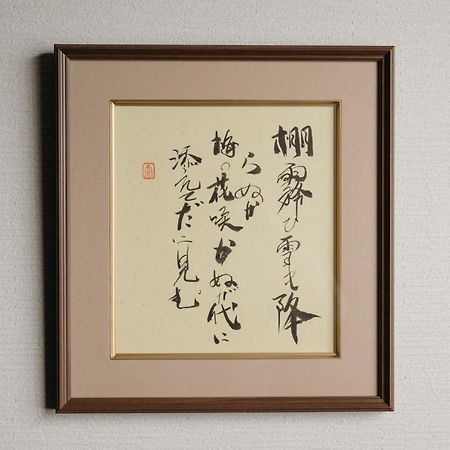 棚霧ひ雪も降
らぬか
梅の花咲かぬが代に
添えてだに見む